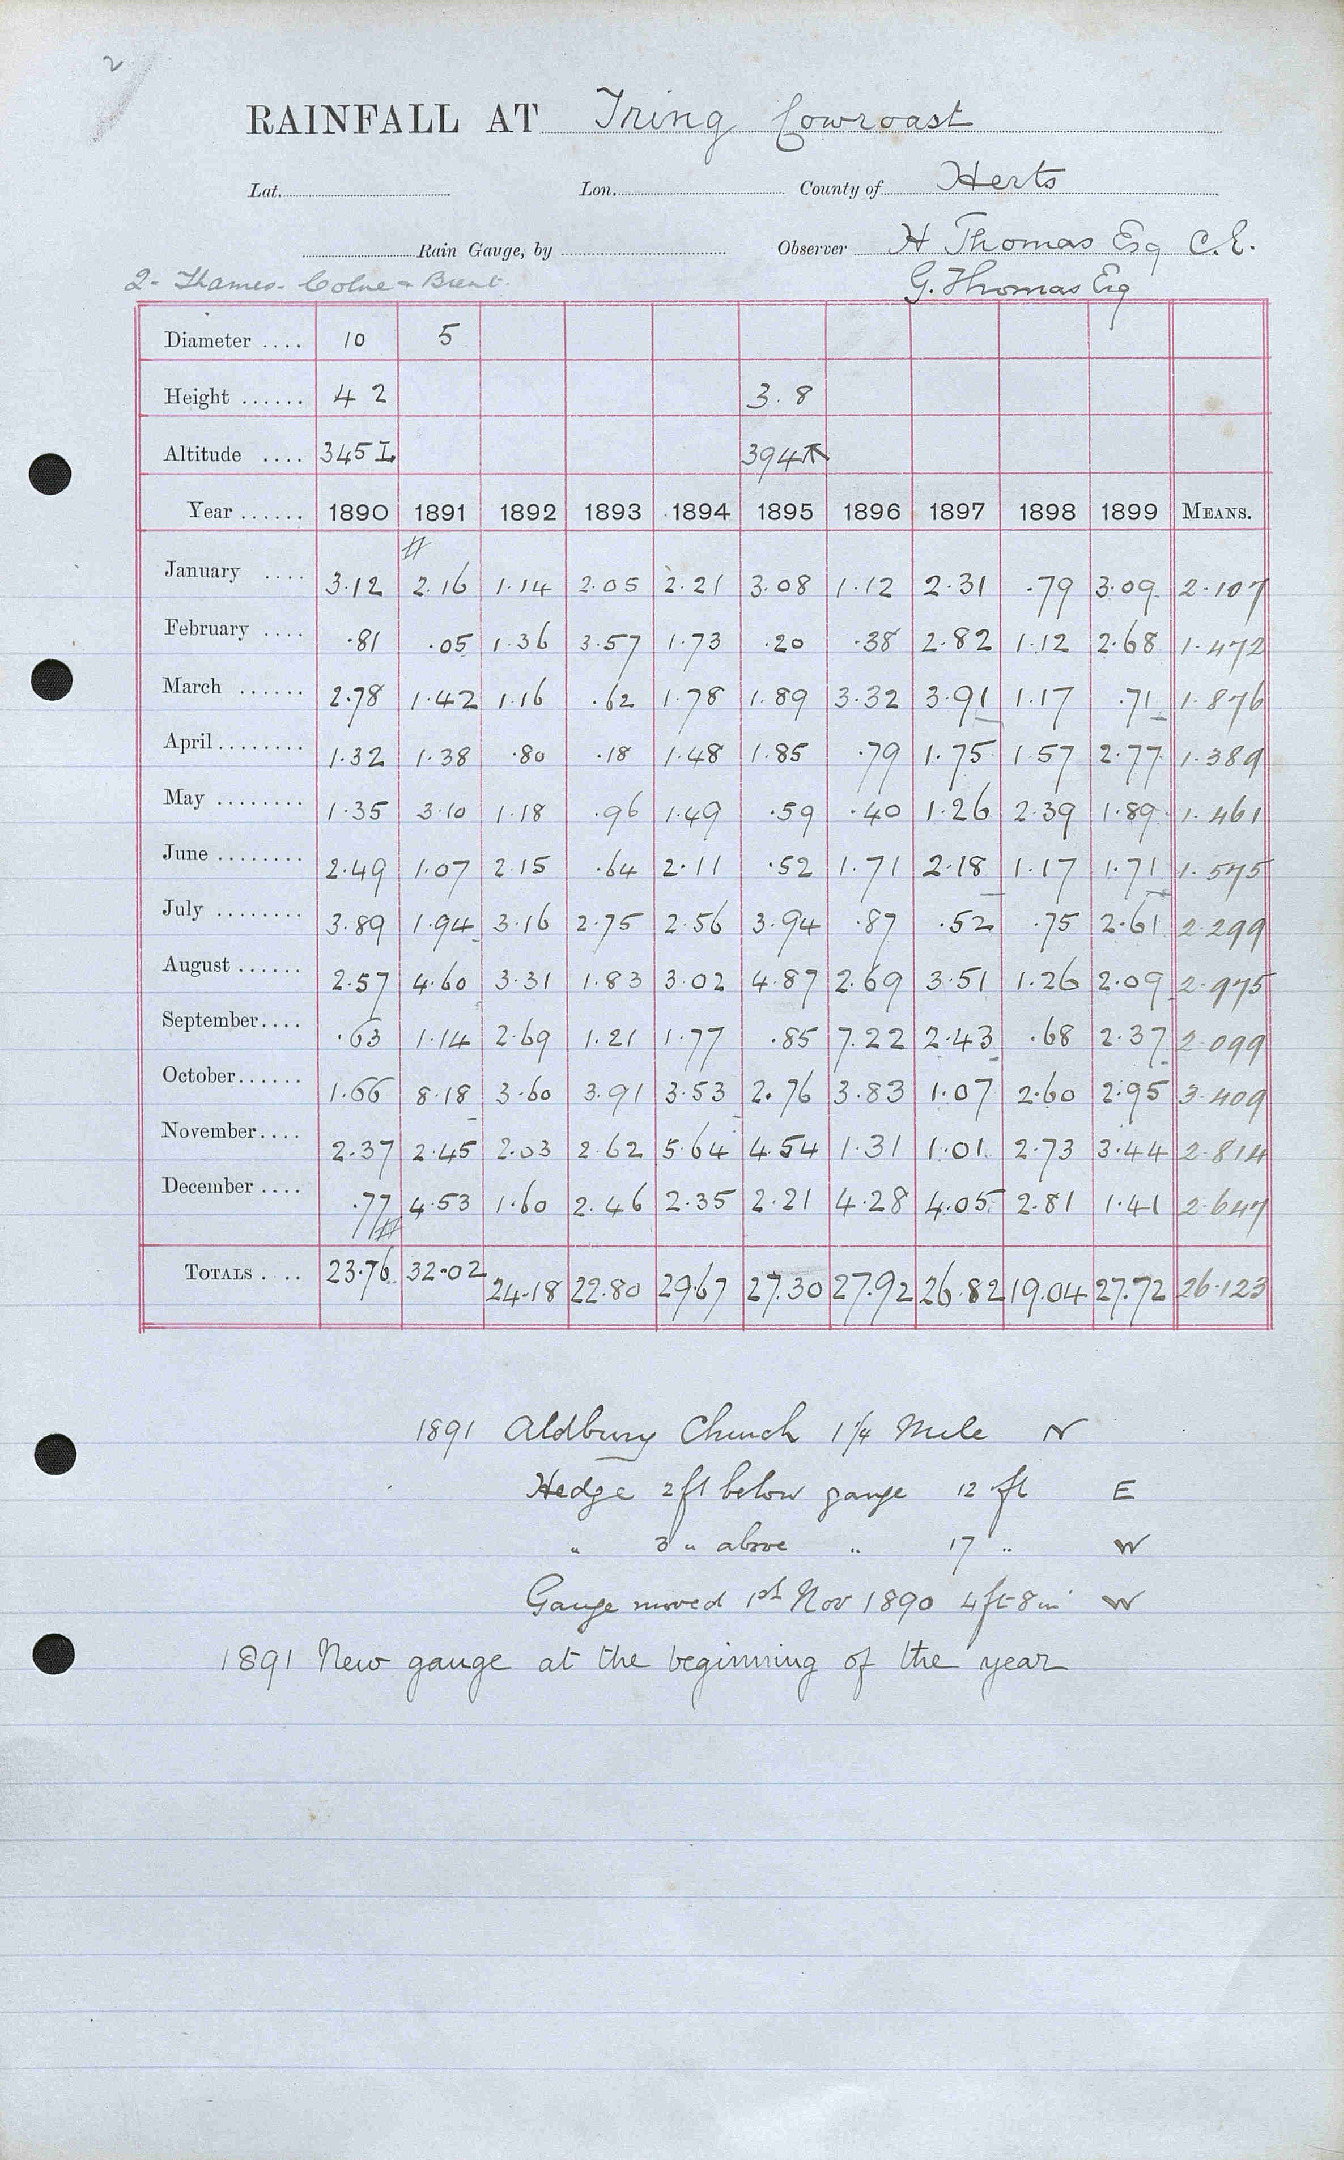 2
RAINFALL AT Tring Cowroast
Lat. Lon. County of Herts
Rain Gauge, by Observer H Thomas Esq C.E.
2 - Thames - Colne & Brent G. Thomas Esq
Diameter .... 10 5
Height ...... 4 2 3.8
Altitude .... 345 L 394
Year ...... 1890 1891 1892 1893 1894 1895 1896 1897 1898 1899 MEANS.
January .... 3.12 2.16 1.14 2.05 2.21 3.08 1.12 2.31 .79 3.09 2.107
February .... .81 .05 1.36 3.57 1.73 .20 .38 2.82 1.12 2.68 1.472
March ...... 2.78 1.42 1.16 .62 1.78 1.89 3.32 3.91 1.17 .71 1.876
April ........ 1.32 1.38 .80 .18 1.48 1.85 .79 1.75 1.57 2.77 1.389
May ........ 1.35 3.10 1.18 .96 1.49 .59 .40 1.26 2.39 1.89 1.461
June ........ 2.49 1.07 2.15 .64 2.11 .52 1.71 2.18 1.17 1.71 1.575
July ........ 3.89 1.94 3.16 2.75 2.56 3.94 .87 .52 .75 2.61 2.299
August ...... 2.57 4.60 3.31 1.83 3.02 4.87 2.69 3.51 1.26 2.09 2.975
September.... .63 1.14 2.69 1.21 1.77 .85 7.22 2.43 .68 2.37 2.099
October...... 1.66 8.18 3.60 3.91 3.53 2.76 3.83 1.07 2.60 2.95 3.409
November.... 2.37 2.45 2.03 2.62 5.64 4.54 1.31 1.01 2.73 3.44 2.814
December .... .77 4.53 1.60 2.46 2.35 2.21 4.28 4.05 2.81 1.41 2.647
TOTALS .... 23.76 32.02 24.18 22.80 29.67 27.30 27.92 26.82 19.04 27.72 26.123
1891 Aldbury Church 1 1/4 Mile N
Hedge 2 ft below gauge 12 ft E
" 3 " above " 17 " W
Gauge moved 1st Nov 1890 4 ft 8 in W
1891 New gauge at the beginning of the year